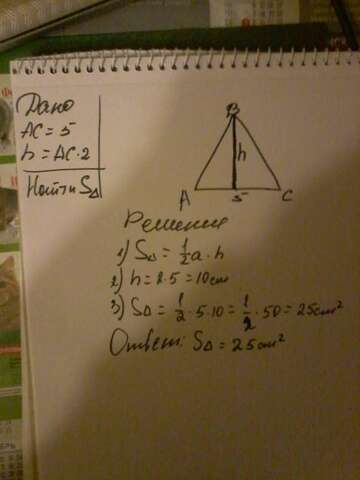 Дано
AC = 5
h = AC · 2
Найти S△
B
h
A
5
C
Решение
1) S△ = 1/2 a · h
2) h = 2 · 5 = 10 cm
3) S△ = 1/2 · 5 · 10 = 1/2 · 50 = 25 cm²
Ответ: S△ = 25 cm²